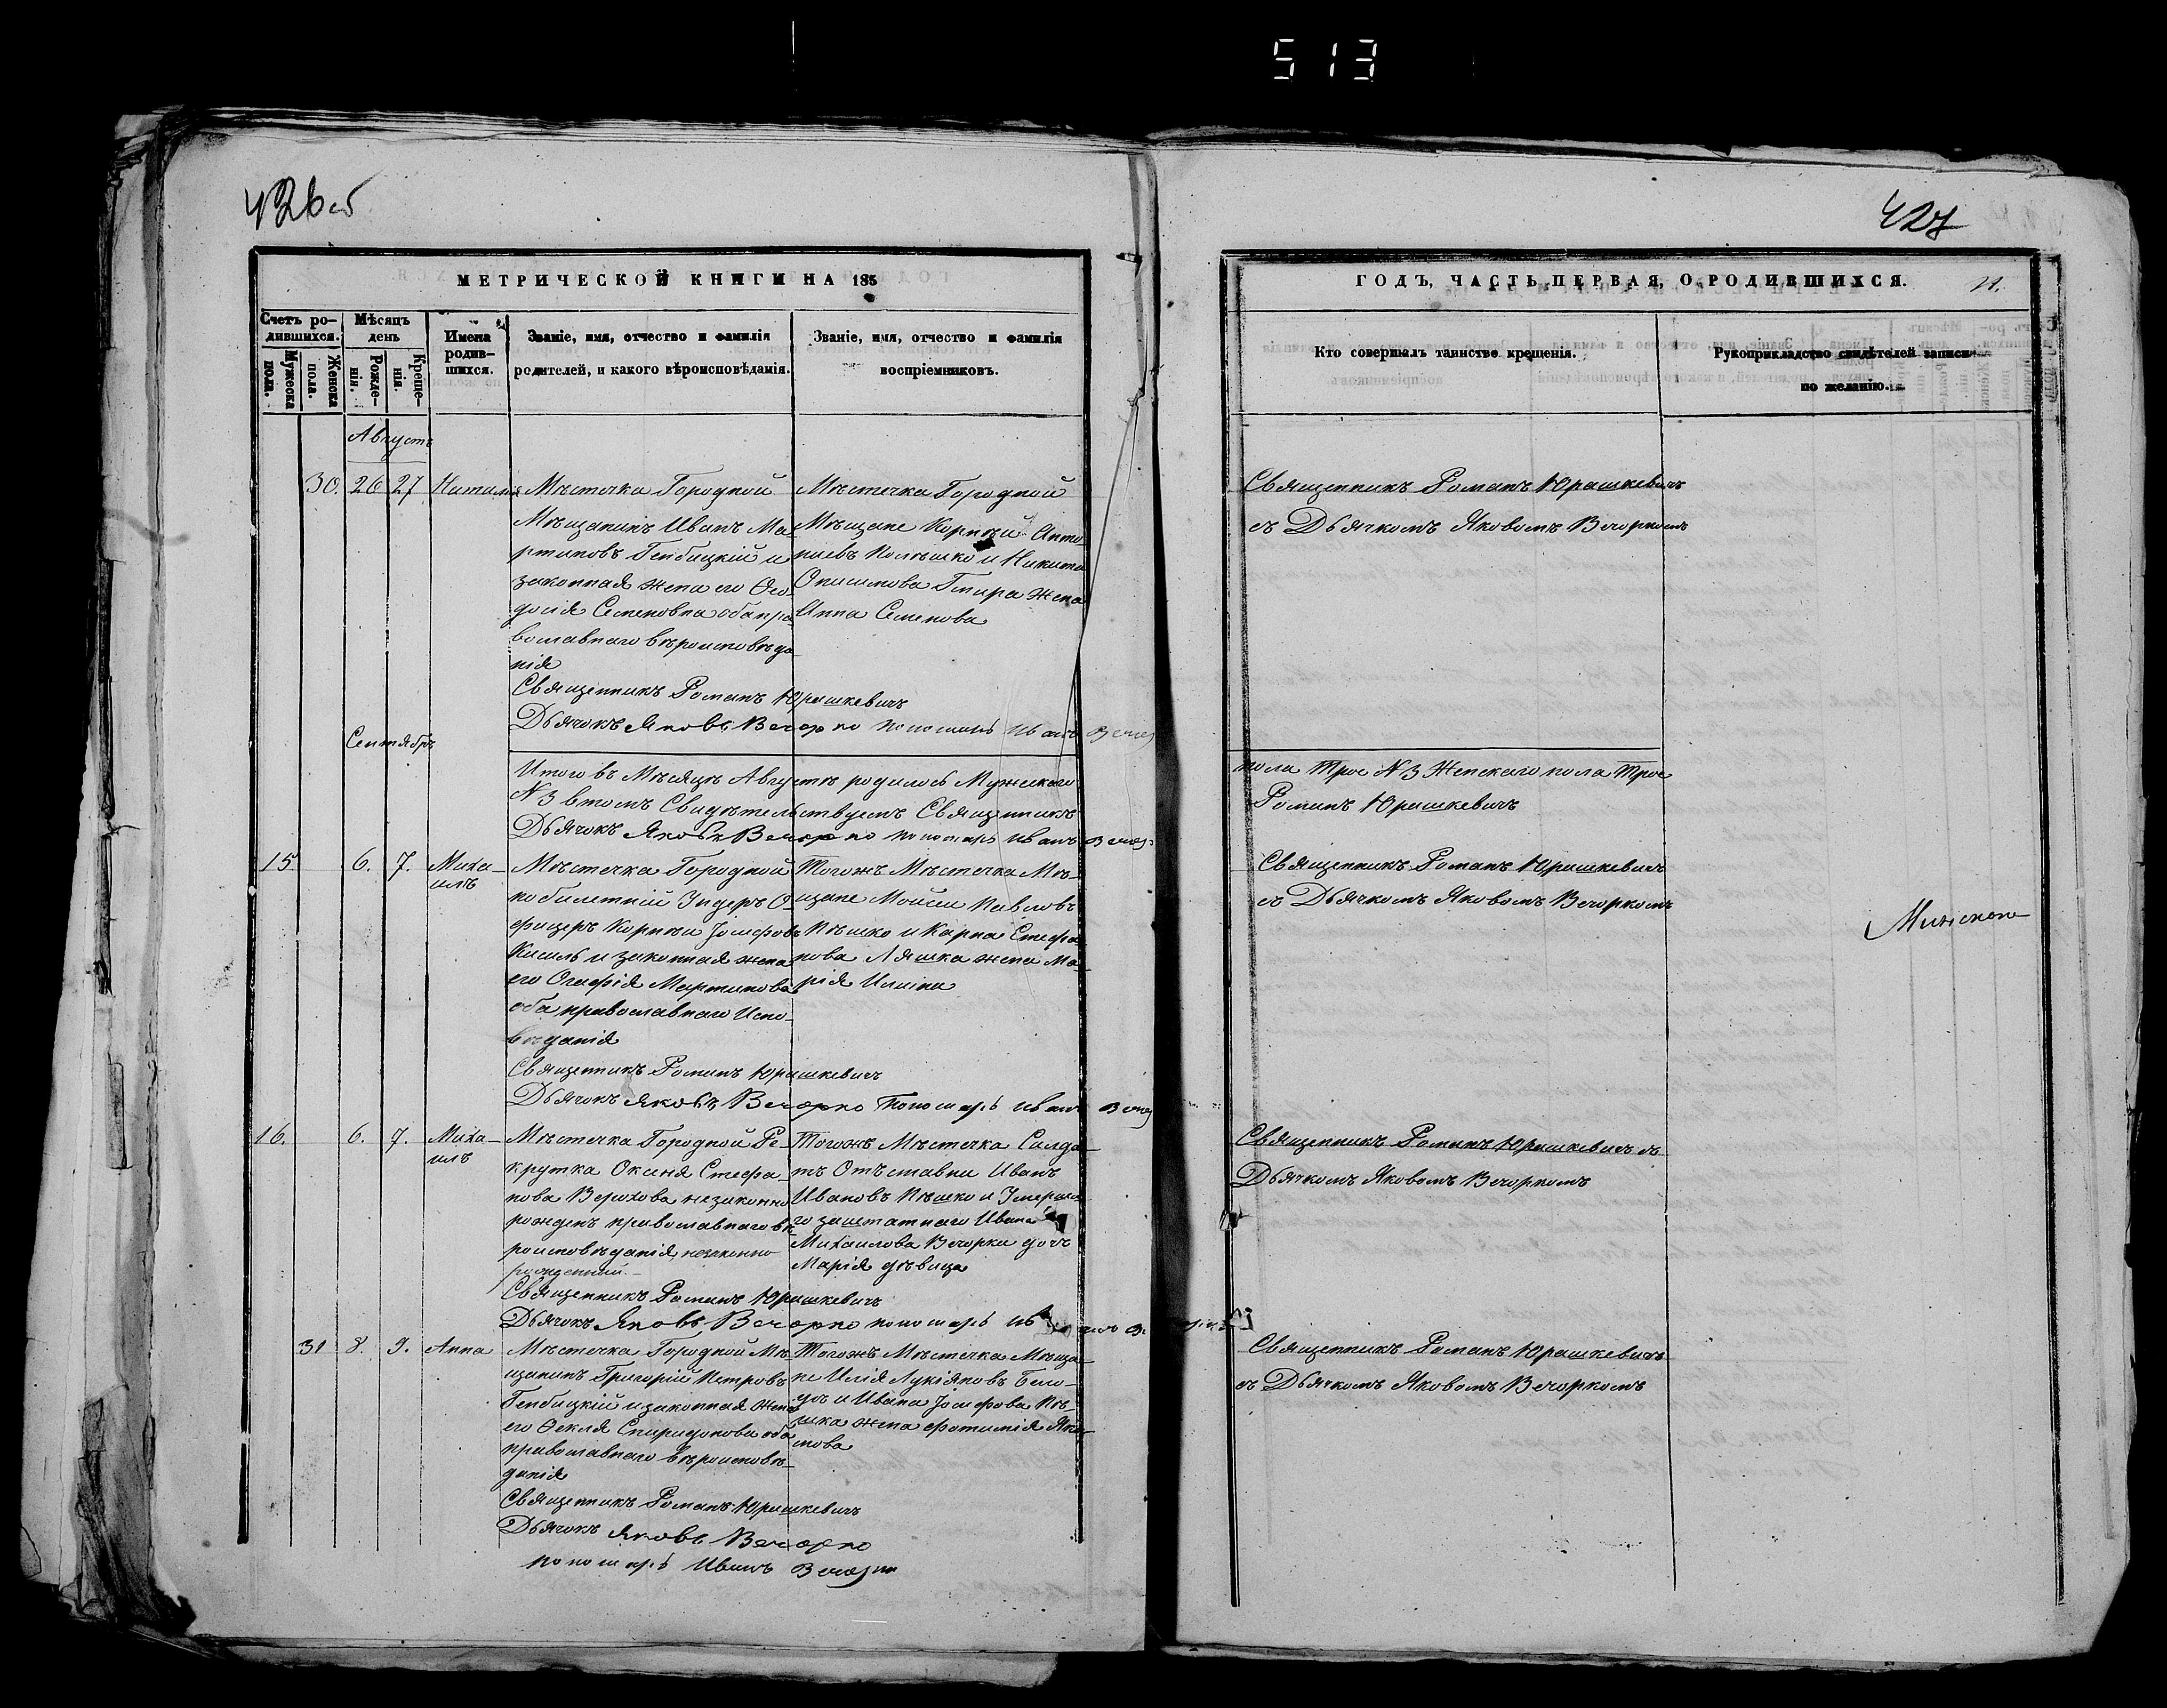 513
426 об
427
МЕТРИЧЕСКОЙ КНИГИ НА 185
Счетъ ро-
дившихся.
Мужеска
пола.
Женска
пола.
Мѣсяцъ
день
Рожде-
нія.
Креще-
нія.
Имена
родив-
шихся.
Званіе, имя, отчество и фамилія
родителей, и какого вѣроисповѣданія.
Званіе, имя, отчество и фамилія
воспріемниковъ.
Августъ
30. 26 27
Мѣстечка Городной
Мѣщанинъ Иванъ Ма-
ртиновъ Гепбицкій и
законная жена его Ѳео-
досія Семеновна оба пра-
вославнаго вѣроисповѣда
нія
Священникъ Романъ Юрашкевичъ
Дьячокъ Яковъ Вечорко Пономарь Иванъ
Мѣстечка Городной
Мѣщане Корнѣй Анто-
ніевъ и Никита
жена
Анна Семенова
Сентябрь
Итого въ Мѣсяцѣ Августѣ родилось Мужескаго
N 3 втомъ Свидѣтельствуемъ Священникъ
Дьячокъ Яковъ Вечорко Пономарь Иванъ
15. 6. 7. Миха-
илъ
Мѣстечка Городной
билетній Ундеръ О-
фицеръ Корнѣй Іосифовъ
Кисиль и законная жена
его Мартинова
оба православнаго Испо-
вѣданія
Священникъ Романъ Юрашкевичъ
Дьячокъ Яковъ Вечорко Пономарь Иванъ
Тогожъ Мѣстечка Мѣ-
щане Мойсей Павловъ
Пѣшко и Карпа Стефа-
нова Ляшка жена Ма-
рія
16. 6. 7. Миха-
илъ
Мѣстечка Городной Ре-
крутка Стефа-
нова незаконно
рожденъ православнаго вѣ-
роисповѣданія незаконно
рожденный.
Священникъ Романъ Юрашкевичъ
Дьячокъ Яковъ Вечорко Пономарь
Тогожъ Мѣстечка Салда-
тъ Отъставни Иванъ
Ивановъ Пѣшко и Умерша
го заштатнаго Ивана
Михаилова Вечорки дочъ
Марія дѣвица
31 8. 9. Анна
Мѣстечка Городной Мѣ-
щанинъ Григорій Петровъ
Гепбицкій и законная жена
его Ѳекля Спиридонова оба
православнаго вѣроисповѣ-
данія
Священникъ Романъ Юрашкевичъ
Дьячокъ Яковъ Вечорко
Пономарь Иванъ
Тогожъ Мѣстечка Мѣща-
не Илія Лукіяновъ
и Ивана Іосифова Пѣ-
шка жена
ГОДЪ, ЧАСТЬ ПЕРВАЯ, О РОДИВШИХСЯ.
Кто совершалъ таинство крещенія.
Рукоприкладство свидѣтелей записи
по желанію.
Священникъ Романъ Юрашкевичъ
съ Дьячкомъ Яковомъ Вечоркомъ
пола трое N 3 Женскаго пола трое
Романъ Юрашкевичъ
Священникъ Романъ Юрашкевичъ
съ Дьячкомъ Яковомъ Вечоркомъ
Священникъ Романъ Юрашкевичъ съ
Дьячкомъ Яковомъ Вечоркомъ
Священникъ Романъ Юрашкевичъ
съ Дьячкомъ Яковомъ Вечоркомъ